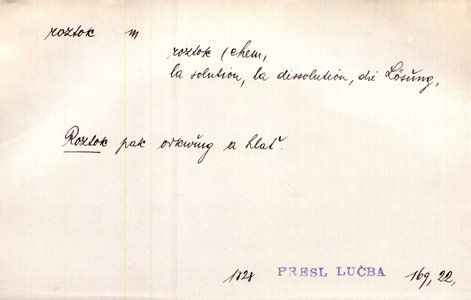 roztok m
roztok (chem,
la solution, la dissolution, die Lösung,
Roztok pak odkwřug a hlať.
1828 PRESL LUČBA 169, 22,